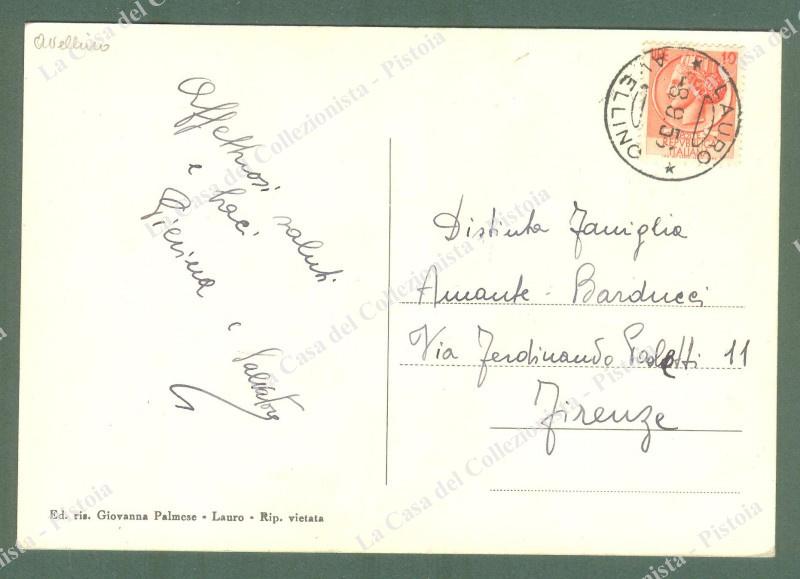 Avellino
Affettuosi saluti
e baci
Pierina e Salvatore
10
REPVBBLICA
ITALIANA
LAURO
AVELLINO
18 9 55
Distinta Famiglia
Amante - Barducci
Via Ferdinando Paoletti 11
Firenze
Ed. ris. Giovanna Palmese - Lauro - Rip. vietata
La Casa del Collezionista - Pistoia